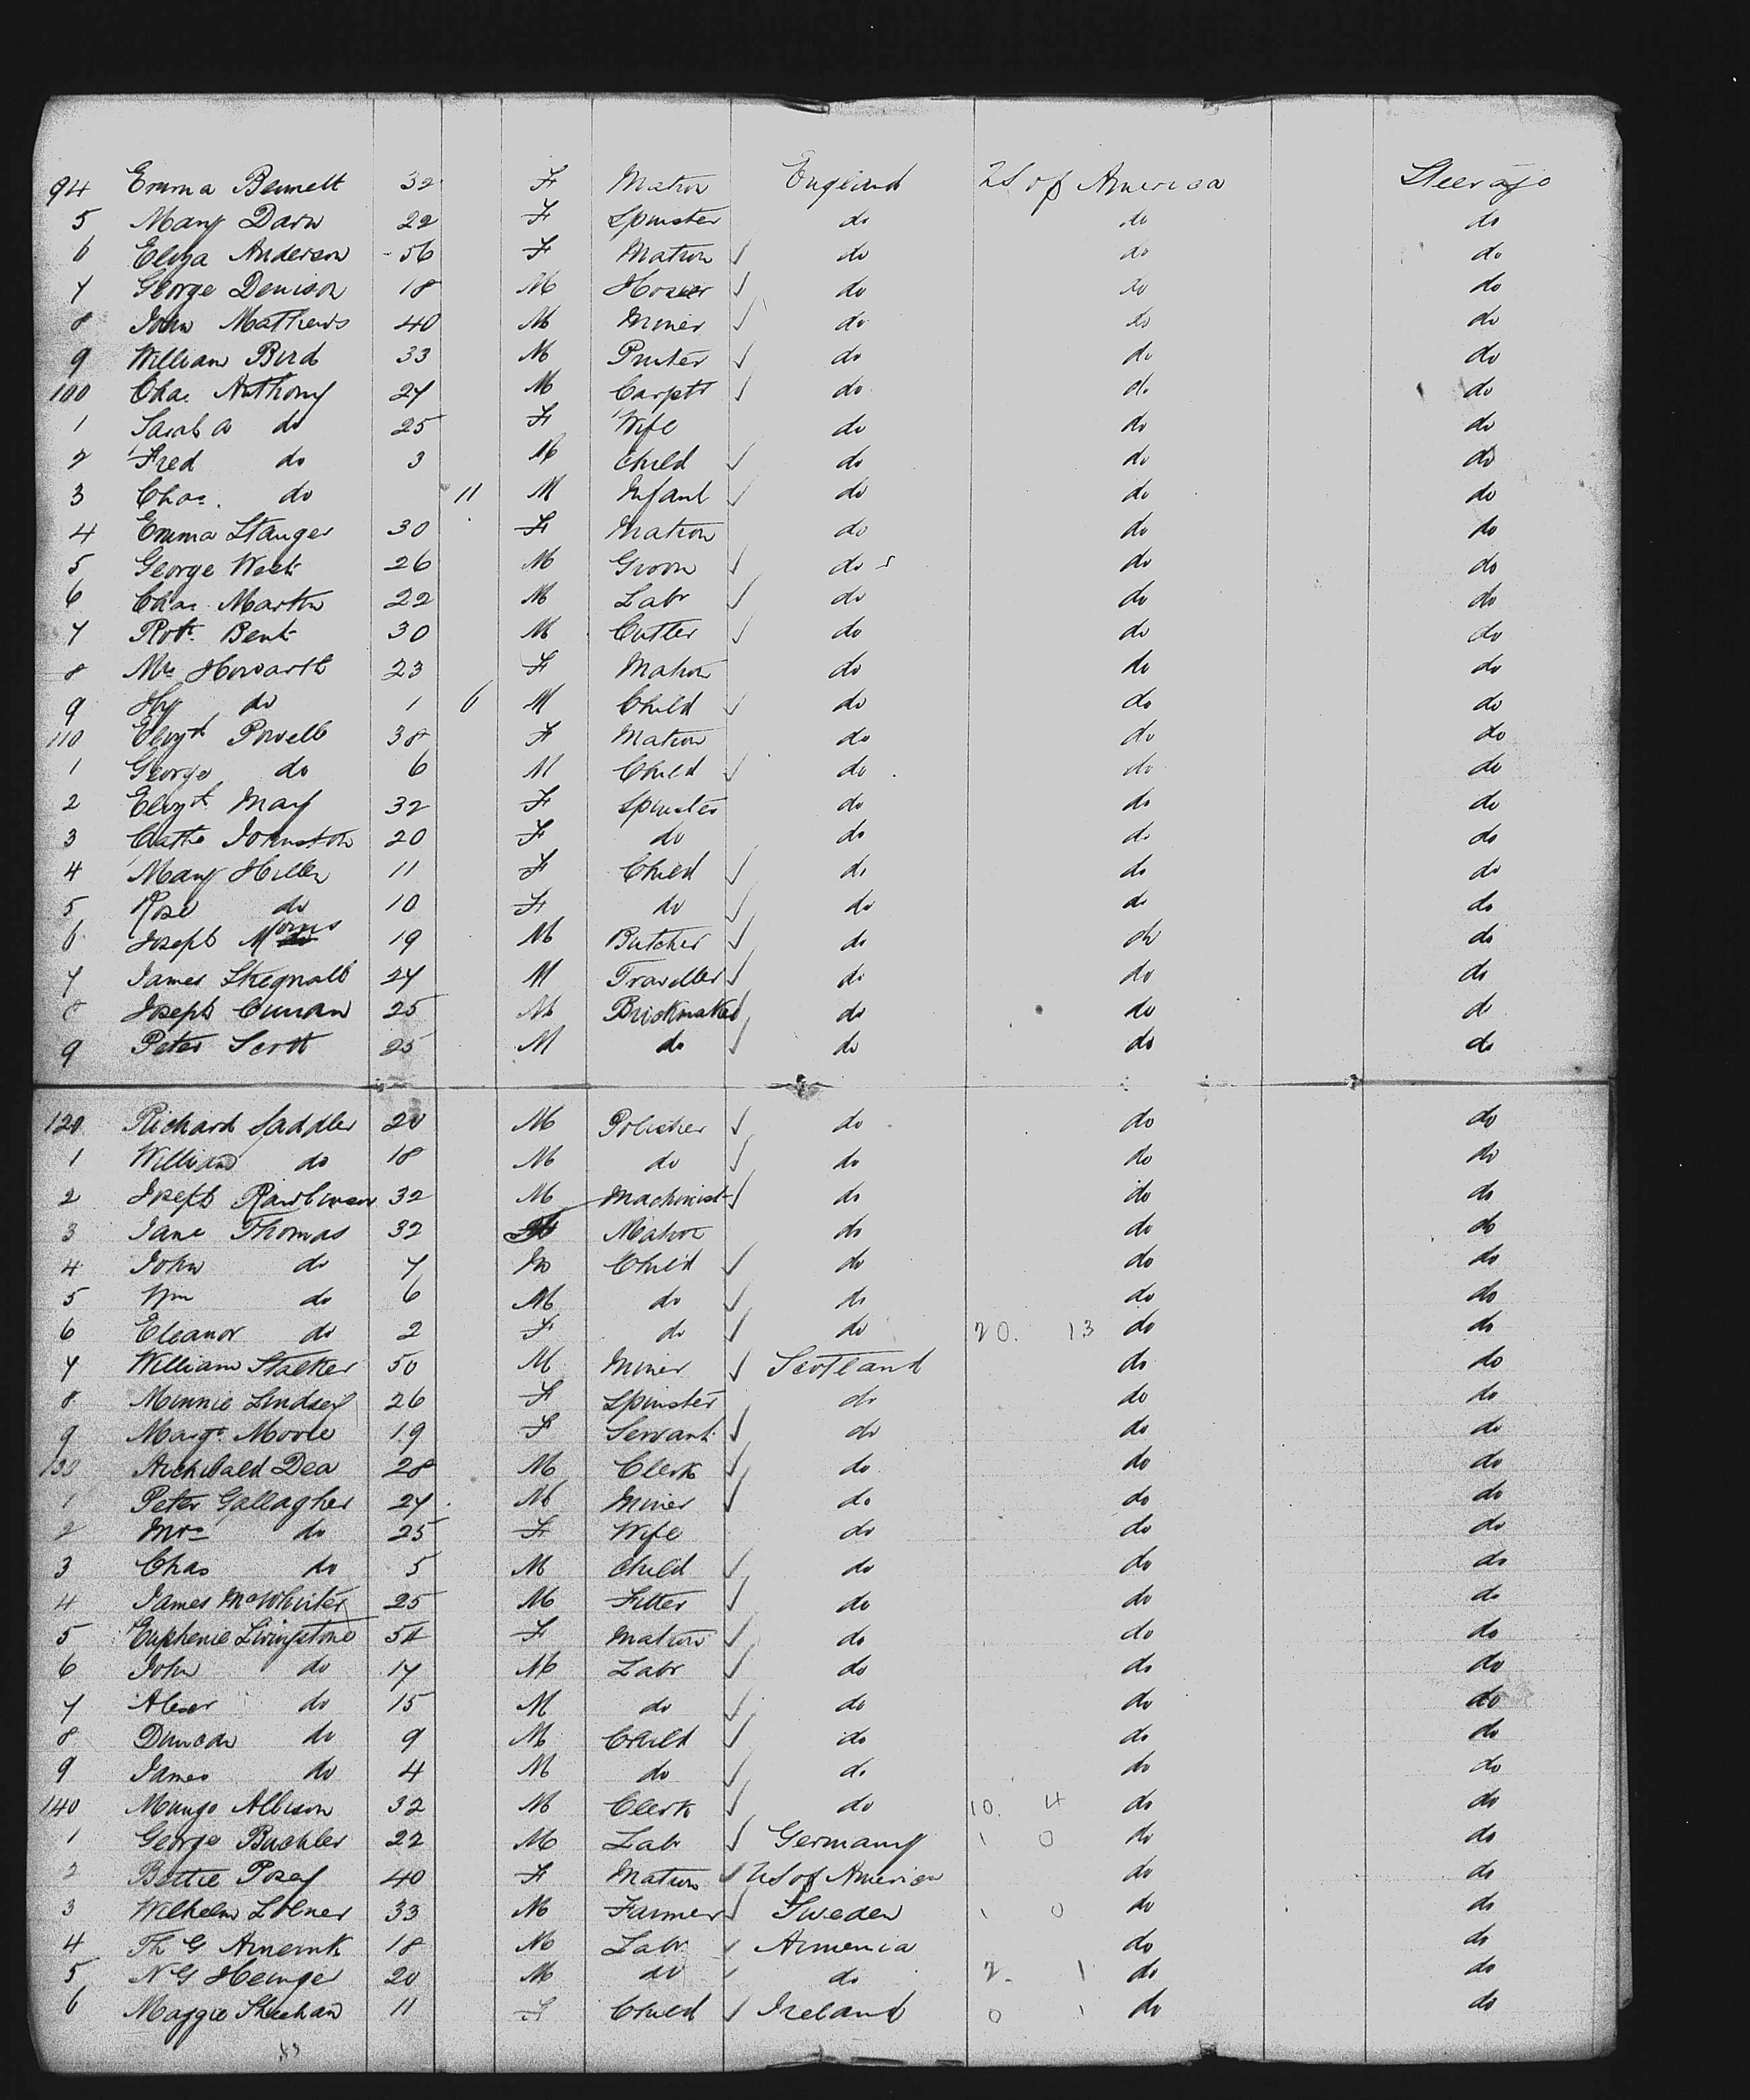 94 Emma Bennett 32 F Matron England US of America Steerage
5 Mary Darn 22 F Spinster do do do
6 Eliza Anderson 56 F Matron do do do
7 George Denison 18 M Hosier do do do
8 John Mathews 40 M Miner do do do
9 William Bird 33 M Printer do do do
100 Chas. Anthony 27 M Carptr do do do
1 Sarah A do 25 F Wife do do do
2 Fred do 3 M Child do do do
3 Chas. do 11 M Infant do do do
4 Emma Stanger 30 F Matron do do do
5 George West 26 M Groom do do do
6 Chas. Martin 22 M Labr do do do
7 Robt. Bent 30 M Cutler do do do
8 Mrs Howarth 23 F Matron do do do
9 Hy do 1 6 M Child do do do
110 Elizt Powell 38 F Matron do do do
1 George do 6 M Child do do do
2 Elizt. May 32 F Spinster do do do
3 Cathe Johnston 20 F do do do do
4 Mary Hillen 11 F Child do do do
5 Rose do 10 F do do do do
6 Joseph Morris 19 M Butcher do do do
7 James Skegnall 24 M Traveller do do do
8 Joseph Curran 25 M Brickmaker do do do
9 Peter Scott 25 M do do do do
120 Richard Saddler 20 M Polisher do do do
1 William do 18 M do do do do
2 Joseph Rawlinson 32 M Machinist do do do
3 Jane Thomas 32 F Matron do do do
4 John do 7 M Child do do do
5 Wm do 6 M do do do do
6 Eleanor do 2 F do do 20. 13 do do
7 William Stalker 50 M Miner Scotland do do
8 Minnie Lindsey 26 F Spinster do do do
9 Margt. Moore 19 F Servant do do do
130 Archibald Dea 28 M Clerk do do do
1 Peter Gallagher 27 M Miner do do do
2 Mrs do 25 F Wife do do do
3 Chas do 5 M Child do do do
4 James McWhirter 25 M Fitter do do do
5 Euphenie Livingstone 54 F Matron do do do
6 John do 17 M Labr do do do
7 Alexr do 15 M do do do do
8 Duncan do 9 M Child do do do
9 James do 4 M do do do do
140 Mungo Allison 32 M Clerk do 10. 4 do do
1 George Buchler 22 M Labr Germany 1 0 do do
2 Bettie Posey 40 F Matron US of America do do
3 Wilhelm 33 M Farmer Sweden 1 0 do do
4 Th G 18 M Labr Armenia do do
5 N G 20 M do do 2. 1 do do
6 Maggie Sheehan 11 F Child Ireland 0 1 do do